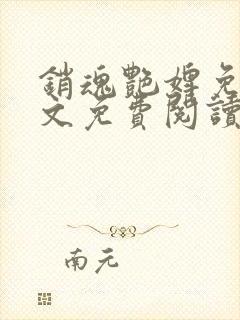 銷魂艷婢免
文免費閱讀
南元